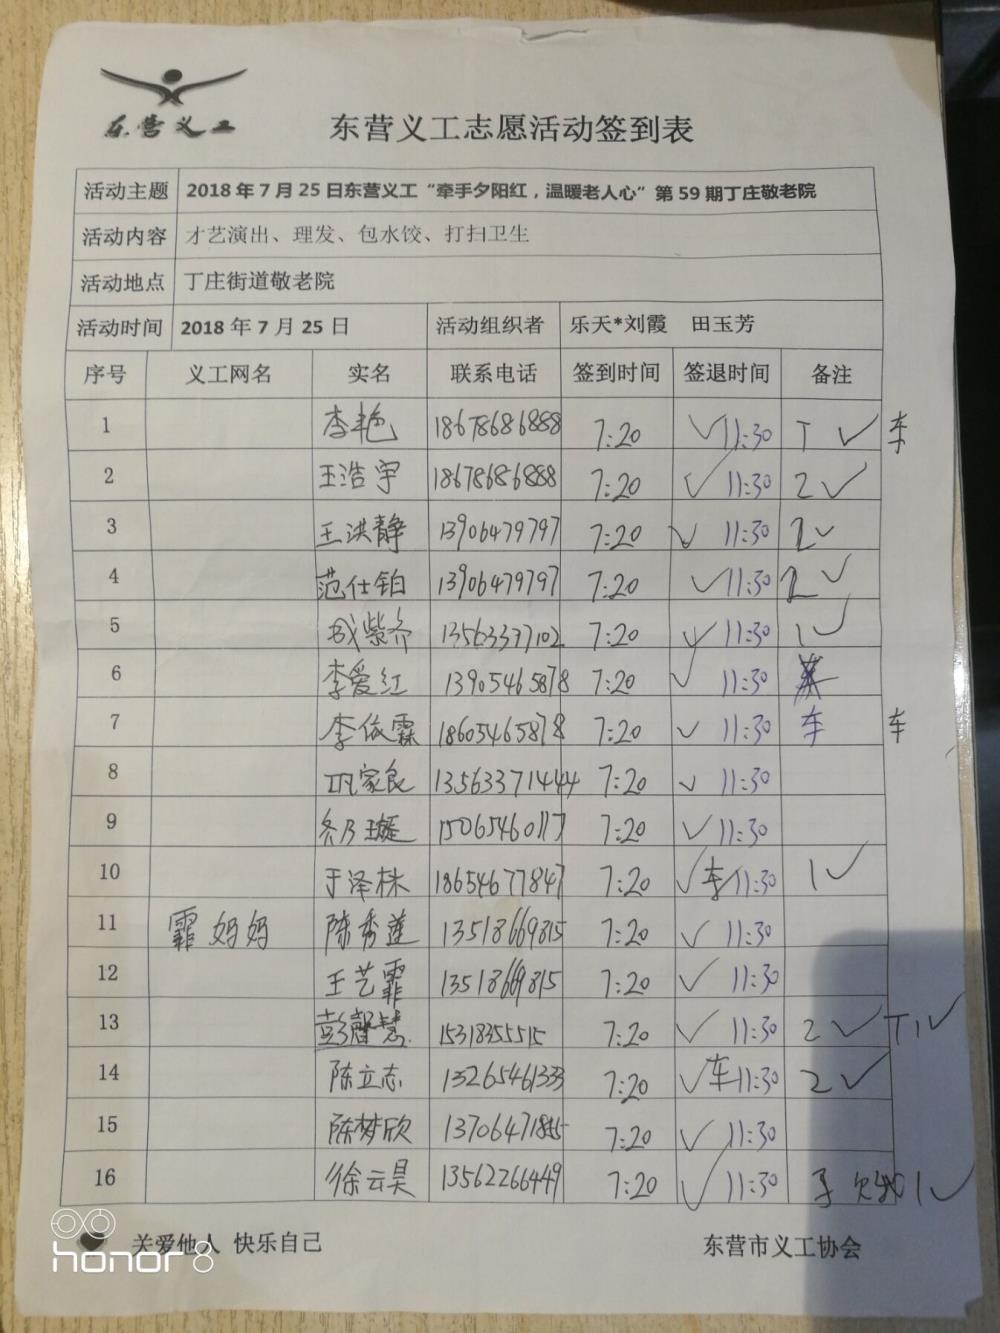 东营义工
东营义工志愿活动签到表
活动主题 2018 年 7 月 25 日东营义工“牵手夕阳红，温暖老人心”第 59 期丁庄敬老院
活动内容 才艺演出、理发、包水饺、打扫卫生
活动地点 丁庄街道敬老院
活动时间 2018 年 7 月 25 日 活动组织者 乐天*刘霞 田玉芳
序号 义工网名 实名 联系电话 签到时间 签退时间 备注
1 李艳 18678686888 7:20 ✓ 11:30 T ✓ 车
2 王浩宇 18678686888 7:20 ✓ 11:30 2 ✓
3 王洪静 13906479797 7:20 ✓ 11:30 2 ✓
4 范仕铂 13906479797 7:20 ✓ 11:30 2 ✓
5 成紫齐 13563337102 7:20 ✓ 11:30 1 ✓
6 李爱红 13905465878 7:20 ✓ 11:30
7 李依霖 18605465878 7:20 ✓ 11:30 车 车
8 巩家良 13563371444 7:20 ✓ 11:30
9 15065460117 7:20 ✓ 11:30
10 于泽林 18654677847 7:20 ✓ 车 11:30 1 ✓
11 霏妈妈 陈秀莲 13518669815 7:20 ✓ 11:30
12 王艺霏 13518669815 7:20 ✓ 11:30
13 彭馨慧 15318355515 7:20 ✓ 11:30 2 ✓ T 1 ✓
14 陈立志 13265461333 7:20 ✓ 车 11:30 2 ✓
15 陈梦欣 7:20 ✓ 11:30
16 徐云昊 13562266449 7:20 ✓ 11:30 1 ✓
关爱他人 快乐自己 东营市义工协会
honor 8